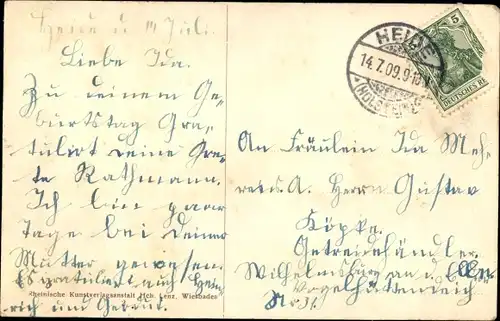 Heide d. 14. Juli.
Liebe Ida.
Zu deinem Ge-
burtstag Gra-
tulirt deine Gre-
te Rathmann.
Ich bin paar
Tage bei deiner
Mutter gewesen.
Es gratuliert auch Hein-
rich und
Rheinische Kunstverlagsanstalt Hch. Lenz, Wiesbaden
HEIDE
14.7.09.9-10V
(HOLSTEIN)
5
DEUTSCHES REICH
An Fräulein Ida Meh-
rens. A. Herrn Gustav
Köpke.
Getreidehändler.
Wilhelmsburg an d. Elbe.
Vogelhüttendeich
No. 31.